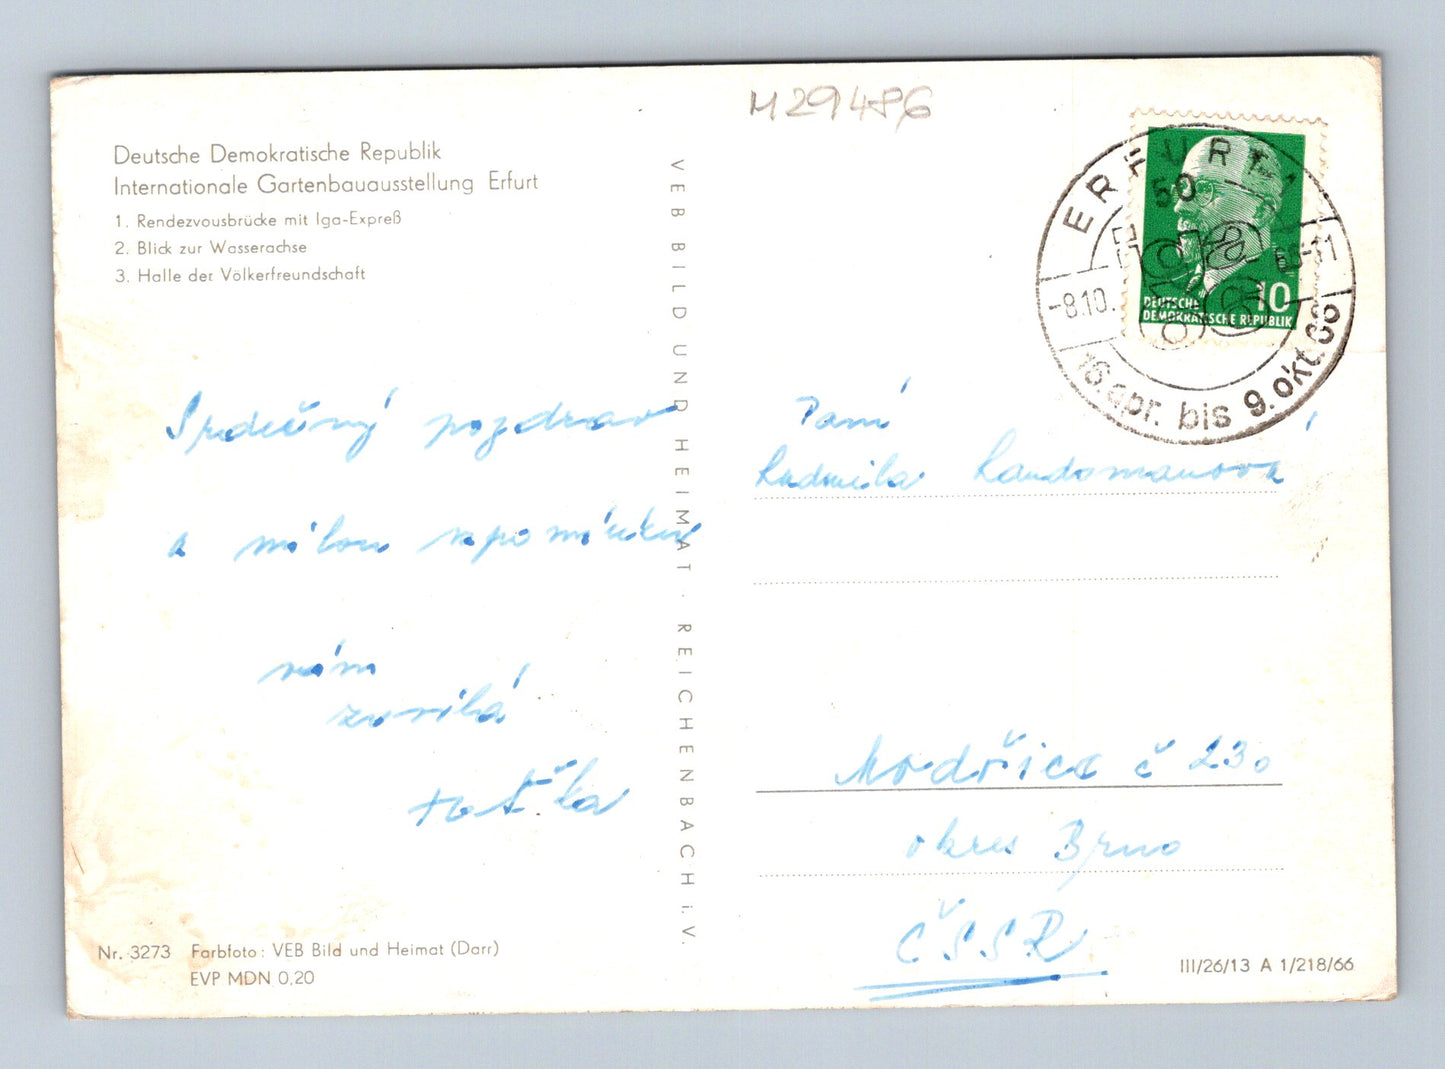 M29486
Deutsche Demokratische Republik
Internationale Gartenbauausstellung Erfurt
1. Rendezvousbrücke mit Iga-Expreß
2. Blick zur Wasserachse
3. Halle der Völkerfreundschaft
Srdečný pozdrav
a milou vzpomínku
vám
zasílá
Nr. 3273 Farbfoto: VEB Bild und Heimat (Darr)
EVP MDN 0,20
VEB BILD UND HEIMAT · REICHENBACH i. V.
ERFURT
50
-8.10. 66-11
16. apr. bis 9. okt. 66
10
DEUTSCHE
DEMOKRATISCHE REPUBLIK
Paní
Ludmila Landsmanová
Modřice č 230
okres Brno
ČSSR
III/26/13 A 1/218/66